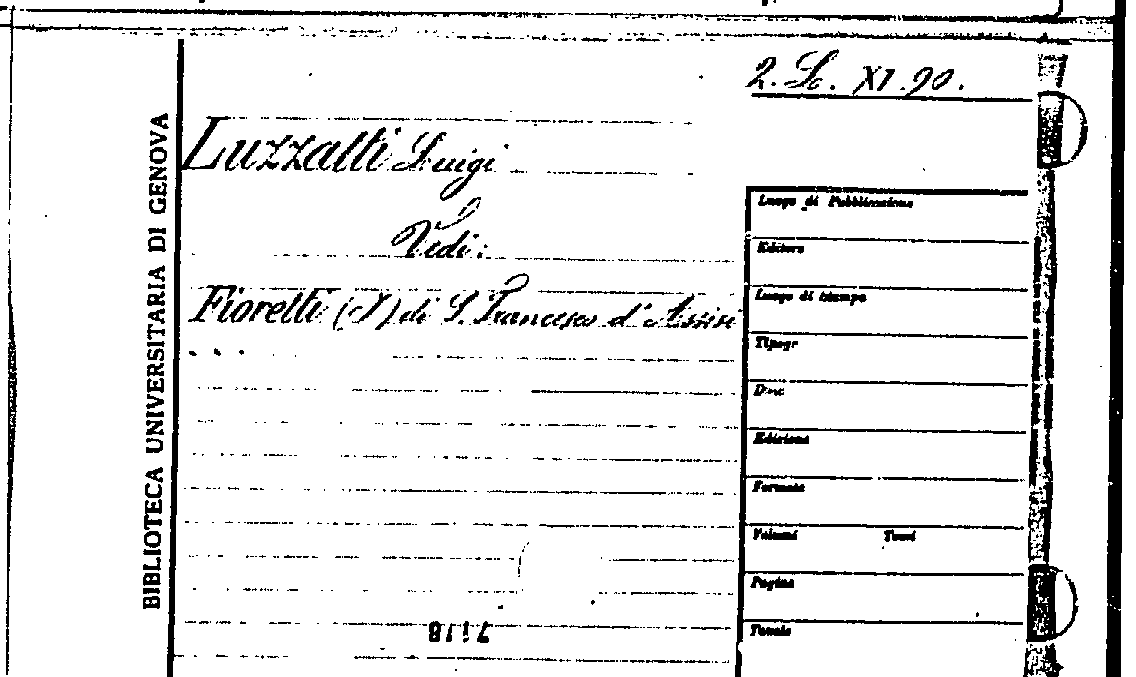 2. Sc. XI. 90.
BIBLIOTECA UNIVERSITARIA DI GENOVA
Luzzatti Luigi
Vedi:
Fioretti (I) di S. Francesco d'Assisi
. . .
Luogo di Pubblicazione
Editore
Luogo di stampa
Tipogr
Data
Edizione
Formato
Volumi Tomi
Pagine
Tavole